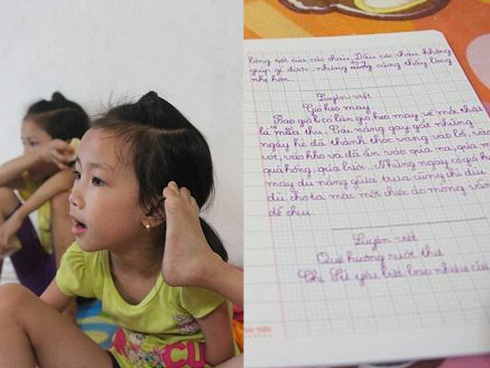 lòng xót của các cháu. Dẫu các cháu không
giúp gì được, nhưng cũng thấy lòng
nhẹ hơn.
Luyện viết
Gió heo may
Bao giờ có làn gió heo may về mới thật
là mùa thu. Cái nắng gay gắt những
ngày hè đã thành thóc vàng vào bồ, vào
vót, vào kho và đã ẩn vào quả na, quả mít
quả hồng, quả bưởi... Những ngày có gió heo
may dù nắng giữa trưa cũng chỉ dìu
dịu cho ta mặc một chiếc áo mỏng vẫn
dễ chịu.
Luyện viết
Quê hương ruột thịt
Chị Sứ yêu biết bao nhiêu cái
CU